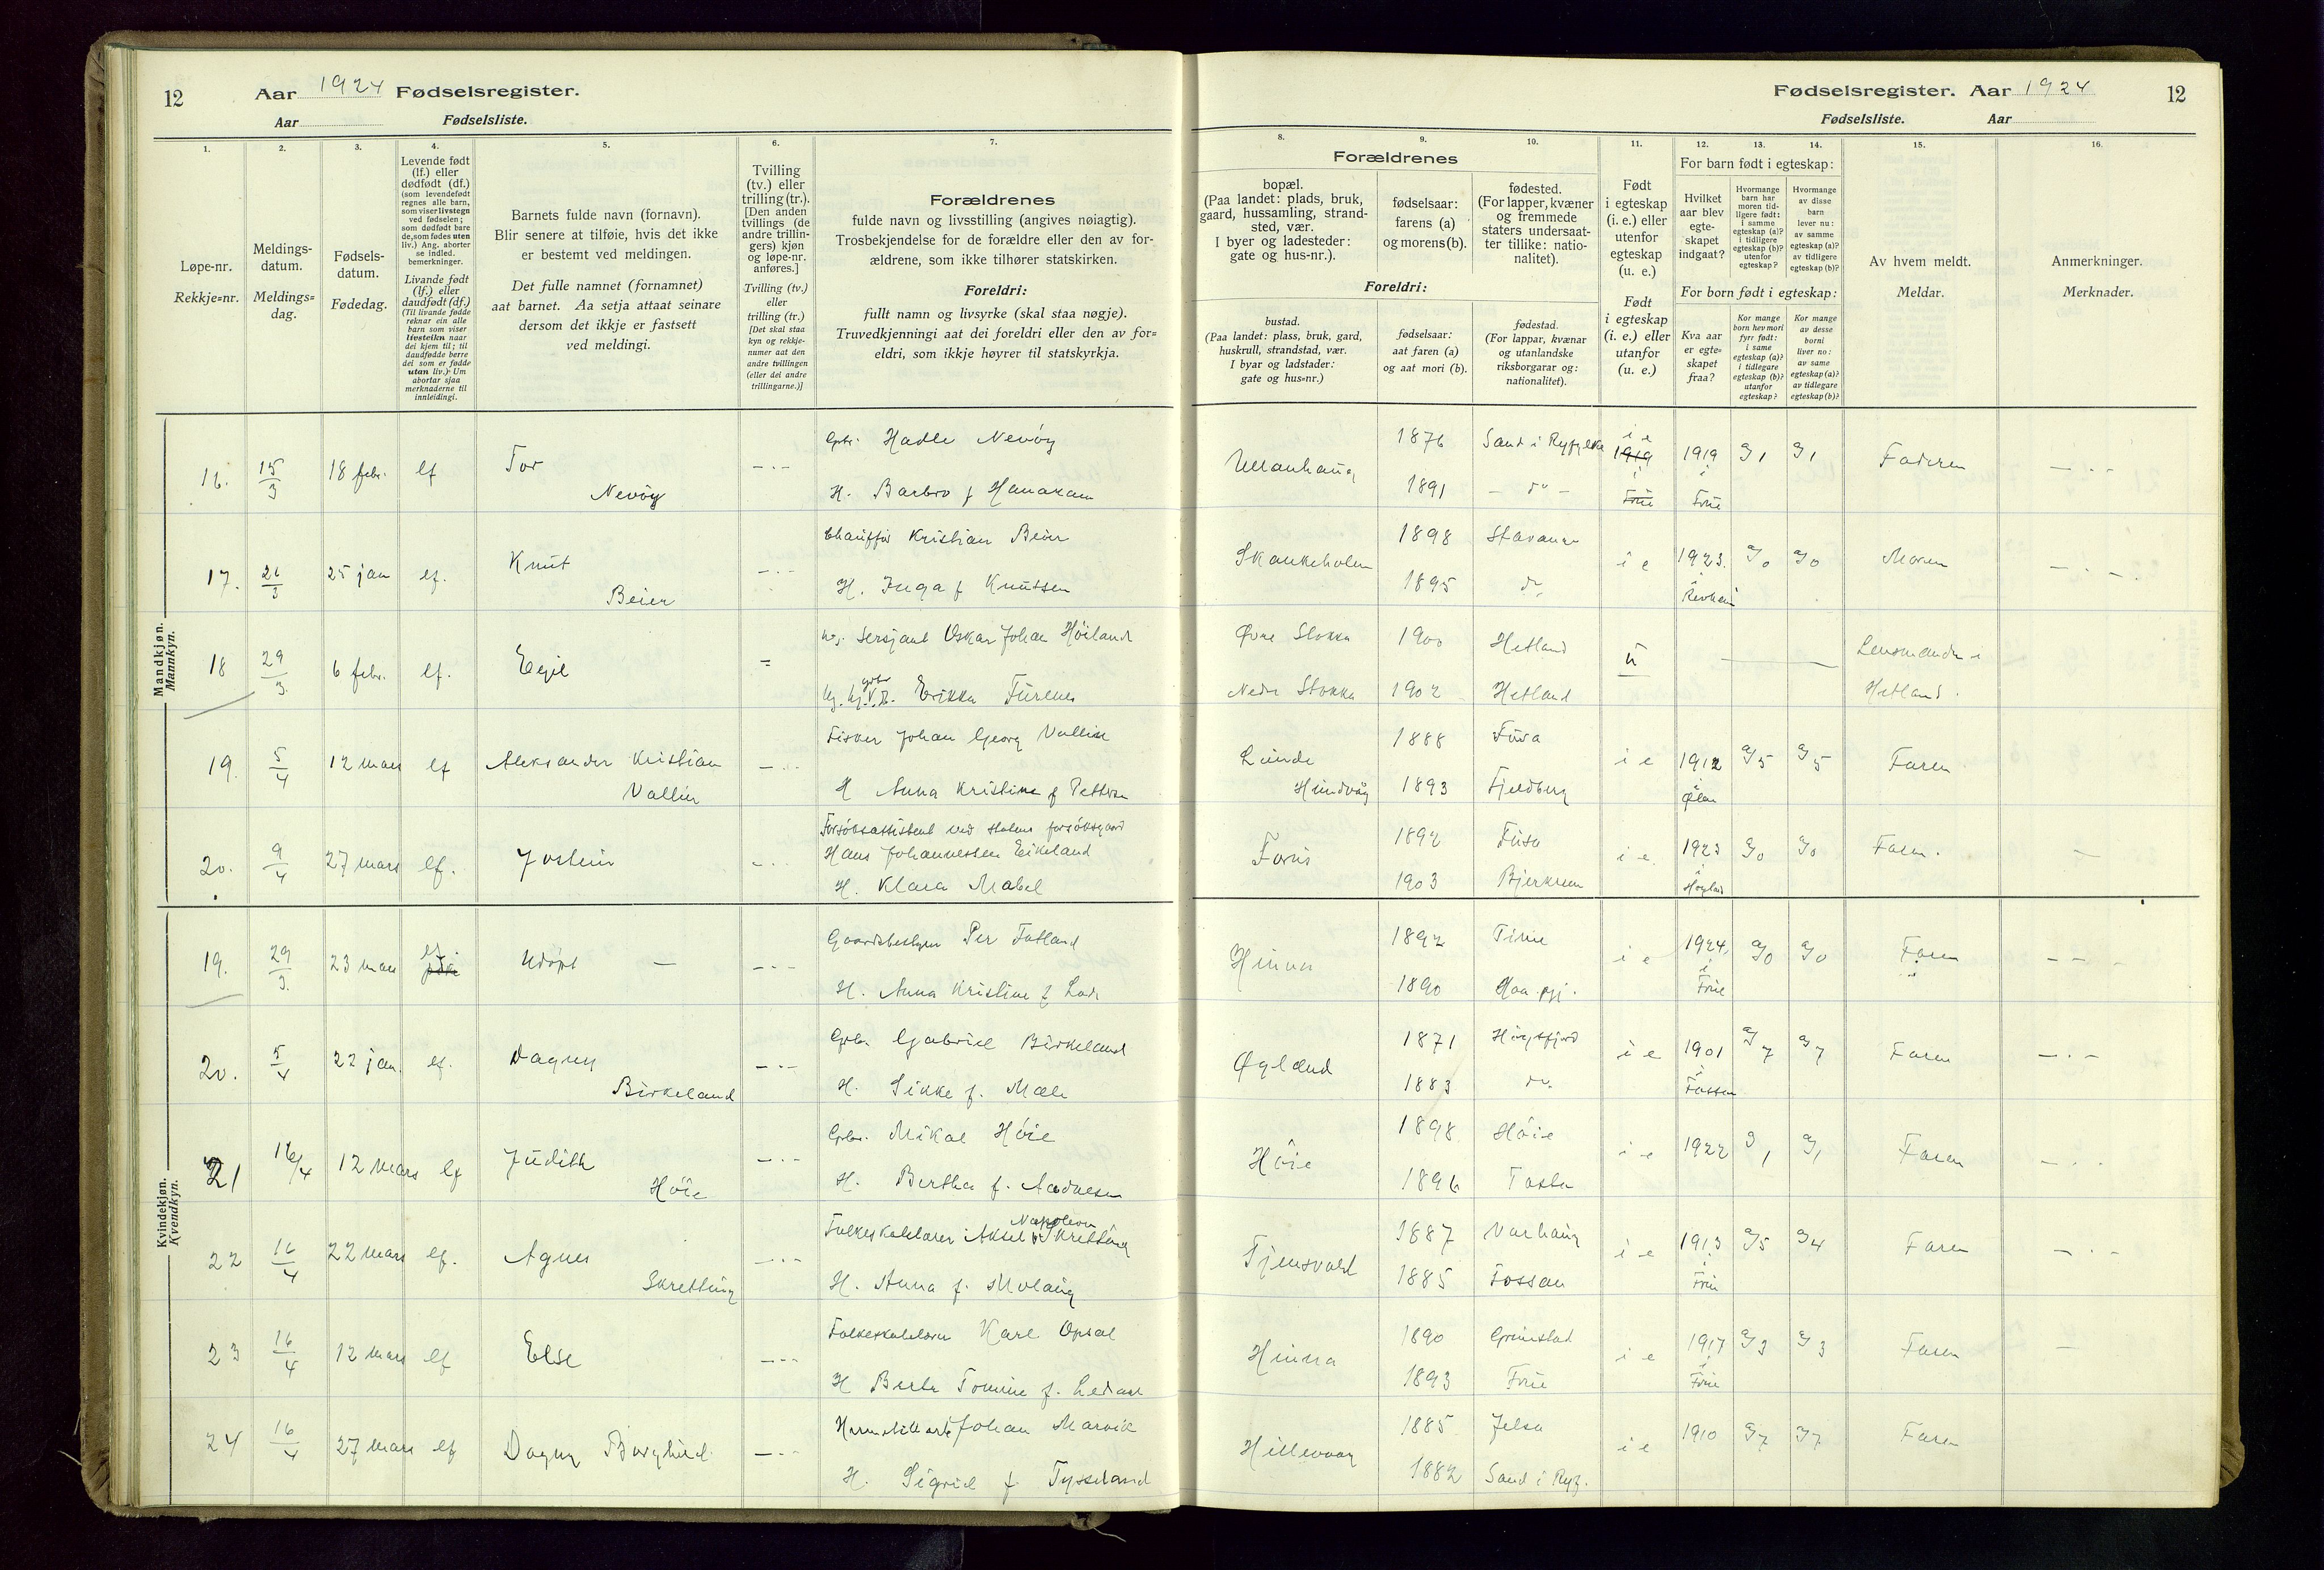 12
Aar 1924 Fødselsregister.
Aar Fødselsliste.
1.
2.
3.
4.
5.
6.
7.
Løpe-nr.
Rekkje=nr.
Meldings-
datum.
Meldings=
dag.
Fødsels-
datum.
Fødedag.
Levende født
(lf.) eller
dødfødt (df.)
(som levendefødt
regnes alle barn,
som viser livstegn
ved fødselen;
som dødfødt bare
de, som fødes uten
liv.) Ang. aborter
se indled.
bemerkninger.
Livande født
(lf.) eller
daudfødt (df.)
(Til livande fødde
reknar ein alle
barn som viser
livsteikn naar
dei kjem til; til
daudfødde berre
dei som er fødde
utan liv.) Um
abortar sjaa
merknaderne til
innleidingi.
Barnets fulde navn (fornavn).
Blir senere at tilføie, hvis det ikke
er bestemt ved meldingen.
Det fulle namnet (fornamnet)
aat barnet. Aa setja attaat seinare
dersom det ikkje er fastsett
ved meldingi.
Tvilling
(tv.) eller
trilling (tr.).
[Den anden
tvillings (de
andre trillin-
gers) kjøn
og løpe-nr.
anføres.]
Tvilling (tv.)
eller
trilling (tr.)
[Det skal staa
kyn og rekkje-
numer aat den
andre tvillingen
(eller dei andre
trillingarne.)]
Forældrenes
fulde navn og livsstilling (angives nøiagtig).
Trosbekjendelse for de forældre eller den av for-
ældrene, som ikke tilhører statskirken.
Foreldri:
fullt namn og livsyrke (skal staa nøgje).
Truvedkjenningi aat dei foreldri eller den av for=
eldri, som ikkje høyrer til statskyrkja.
Mandkjøn.
Mannkyn.
16. 15/3 18 febr. lf Tor Nevöy
Gbr. Hadle Nevöy
H. Barbro f Hanakam
17. 26/3 25 jan lf. Knut Beier
Chauffør Kristian Beier
H. Inga f Knutsen
18 29/3. 6 febr. lf. Egil
Sersjant Oskar Johan Höiland
Erikka Furenes
19. 5/4 12 mars lf Aleksander Kristian Vallin
Fisker Johan Georg Vallin
H Anna Kristine f Petterson
20. 9/4 27 mars lf. Jostein
Forsöksassistent ved statens forsöksgaard
Hans Johannessen Eikeland
H. Klara Mabel
Kvindekjøn.
Kvendkyn.
19. 29/3. 23 mars lf Udöpt —
Gaardsbestyrer Per Fatland
H. Anna Kristine f Lode
20. 5/4 22 jan. lf. Dagny Birkeland
Gbr. Gabriel Birkeland
H. Sikke f. Mæle
21 16/4 12 mars lf Judith Höie
Gbr. Mikal Höie
H. Bertha f. Aadnesen
22 16/4 22 mars lf. Agnes Skretting
Folkeskolelærer Aksel Napoleon Skretting
H. Anna f. Molaug
23 16/4 12 mars lf Else
Folkeskolelærer Karl Opsal
H Berte Tomine f. Ledaal
24 16/4 27 mars lf Dagny Borghild
Johan Marvik
H. Sigrid f Tysseland
Fødselsregister. Aar 1924 12
Fødselsliste. Aar
8.
9.
10.
11.
12.
13.
14.
15.
16.
Forældrenes
bopæl.
(Paa landet: plads, bruk,
gaard, hussamling, strand-
sted, vær.
I byer og ladesteder:
gate og hus-nr.).
fødselsaar:
farens (a)
og morens (b).
fødested.
(For lapper, kvæner
og fremmede
staters undersaat-
ter tillike: natio-
nalitet).
Foreldri:
bustad.
(Paa landet: plass, bruk, gard,
huskrull, strandstad, vær.
I byar og ladstader:
gate og hus=nr.)
fødselsaar:
aat faren (a)
og aat mori (b).
fødestad.
(For lappar, kvænar
og utanlandske
riksborgarar og:
nationalitet).
Født
i egteskap
(i. e.) eller
utenfor
egteskap
(u. e.)
Født
i egteskap
(i. e.) eller
utanfor
(u. e.)
For barn født i egteskap:
Hvilket
aar blev
egte-
skapet
indgaat?
Hvormange
barn har
moren tid-
ligere født:
i samme
egteskap (a)?
i tidligere
egteskap (b)?
utenfor
egteskap?
Hvormange
av disse
barn
lever nu:
av samme
egteskap (a)?
av tidligere
egteskap (b)?
For born født i egteskap:
Kva aar
er egte=
skapet
fraa?
Kor mange
born hev mori
fyrr født:
i same
egteskap (a)?
i tidlegare
egteskap (b)?
utanfor
egteskap?
Kor mange
av desse
borni
liver no:
av same
egteskap (a)?
av tidlegare
egteskap (b)?
Av hvem meldt.
Meldar.
Anmerkninger.
Merknader.
Ullanhaug 1876 Sand i Ryfylke i e 1919 i Frue a/1 a/1 Faderen
1891 — do —
Skankeholm 1898 Stavanger i e 1923. a/0 a/0 Moren
1895 do
Øvre Stokka 1900 Hetland u Lensmanden i
Nedre Stokka 1902 Hetland Hetland.
Lunde Hundvåg 1888 Fusa i e 1912 a/5 a/5 Faren
1893 Fjeldberg Ølen
Forus 1892 Fusa i e 1923 a/0 a/0 Faren.
1903 Bjerkrem
Hinna 1892 Time i e 1924, i Frue a/0 a/0 Faren
1890 Haa pgj.
Øgland 1871 Högsfjord i e 1901 i Fossan a/7 a/7 Faren
1883 do.
Höie 1898 Höie i e 1922 a/1 a/1 Faren
1896 Tasta
Tjensvold 1887 Varhaug i e 1913 i Frue a/5 a/4 Faren
1885 Fossan
Hinna 1890 Grimstad i e 1917 i Frue a/3 a/3 Faren
1893 Frue
Hillevaag 1885 Jelsa i e 1910 a/7 a/7 Faren
1882 Sand i Ryf.